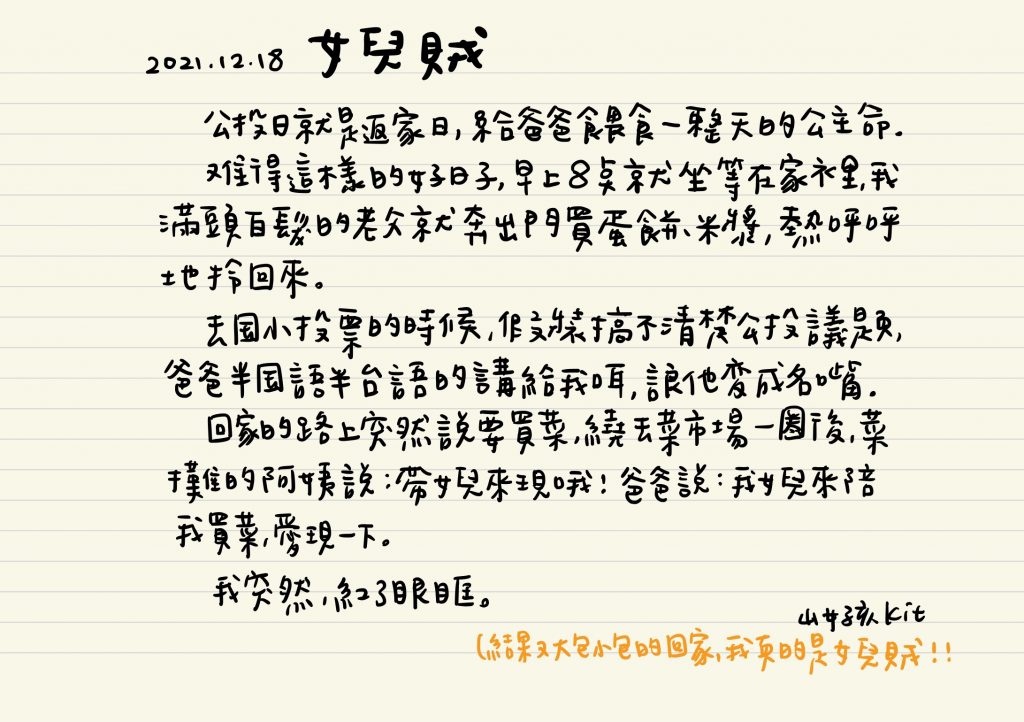 2021.12.18 女兒賊
公投日就是返家日,給爸爸餵食一整天的公主命.
难得這樣的好日子,早上8点就坐等在家裡,我
滿頭白髮的老父就奔出門買蛋餅、米漿,熱呼呼
地拎回來。
去国小投票的時候,假裝搞不清楚公投議題,
爸爸半国語半台語的講給我听,讓他变成名嘴.
回家的路上突然說要買菜,繞去菜市場一圈後,菜
攤的阿姨說:帶女兒來現哦!爸爸說:我女兒來陪
我買菜,愛現一下。
我突然,紅了眼眶。
山女孩Kit
(結果又大包小包的回家,我真的是女兒賊!!